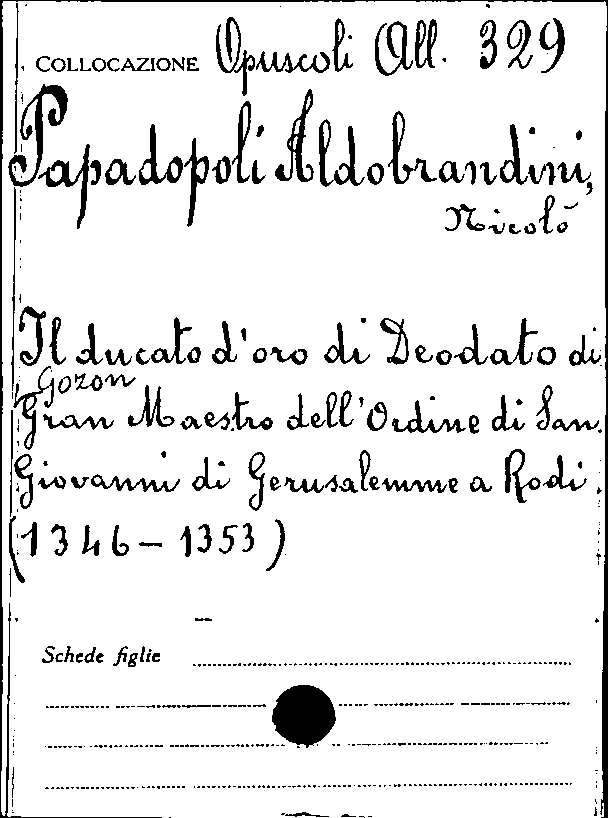 COLLOCAZIONE Opuscoli All. 329
Papadopoli Aldobrandini,
Nicolò
Il ducato d'oro di Deodato di
Gozon
Gran Maestro dell'Ordine di San
Giovanni di Gerusalemme a Rodi.
(1346-1353)
Schede figlie